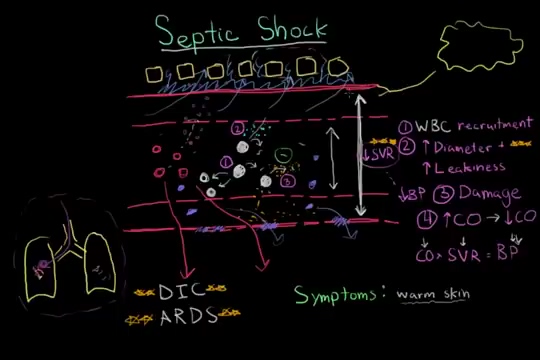 Septic Shock
① WBC recruitment
② ↑ Diameter +
↑ Leakiness
↓SVR
↓BP ③ Damage
④ ↑CO → ↓CO
CO × SVR = BP
②
①
③
DIC
ARDS
Symptoms: warm skin